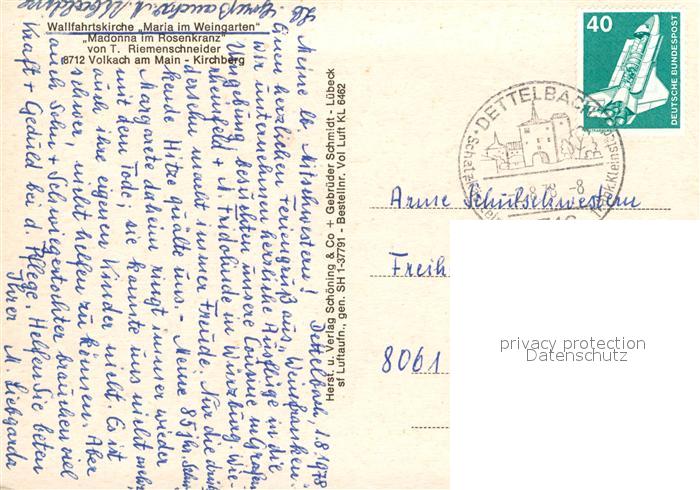 Wallfahrtskirche „Maria im Weingarten"
„Madonna im Rosenkranz"
von T. Riemenschneider
8712 Volkach am Main - Kirchberg
Herst. u. Verlag Schöning & Co + Gebrüder Schmidt - Lübeck
sf Luftaufn., gen. SH 1-37791 - Bestellnr. Vol Luft KL 6462
Dettelbach, 1.8.1978
Meine lb. Mitschwestern!
Einen herzlichen Feriengruß aus Weinfranken.
Wir unternehmen herrliche Ausflüge in die
Umgebung, besuchten unsere Connie in Grafen-
rheinfeld + M. Fridolinde in Würzburg. Wie-
dersehn macht immer Freude. Nur die drük-
kende Hitze quälte uns. - Meine 85 jhr. Schw.
Margarete daheim ringt immer wieder
mit dem Tode; sie kannte uns nicht mehr,
auch ihre eigenen Kinder nicht. Es ist
schwer, nicht helfen zu können. Aber
auch Sohn + Schwiegertochter brauchen viel
Kraft + Geduld bei d. Pflege. Helfen Sie beten
Ihrer M. Liebgarda
40
DEUTSCHE BUNDESPOST
DETTELBACH
Arme Schulschwestern
Freih
8061
privacy protection
Datenschutz